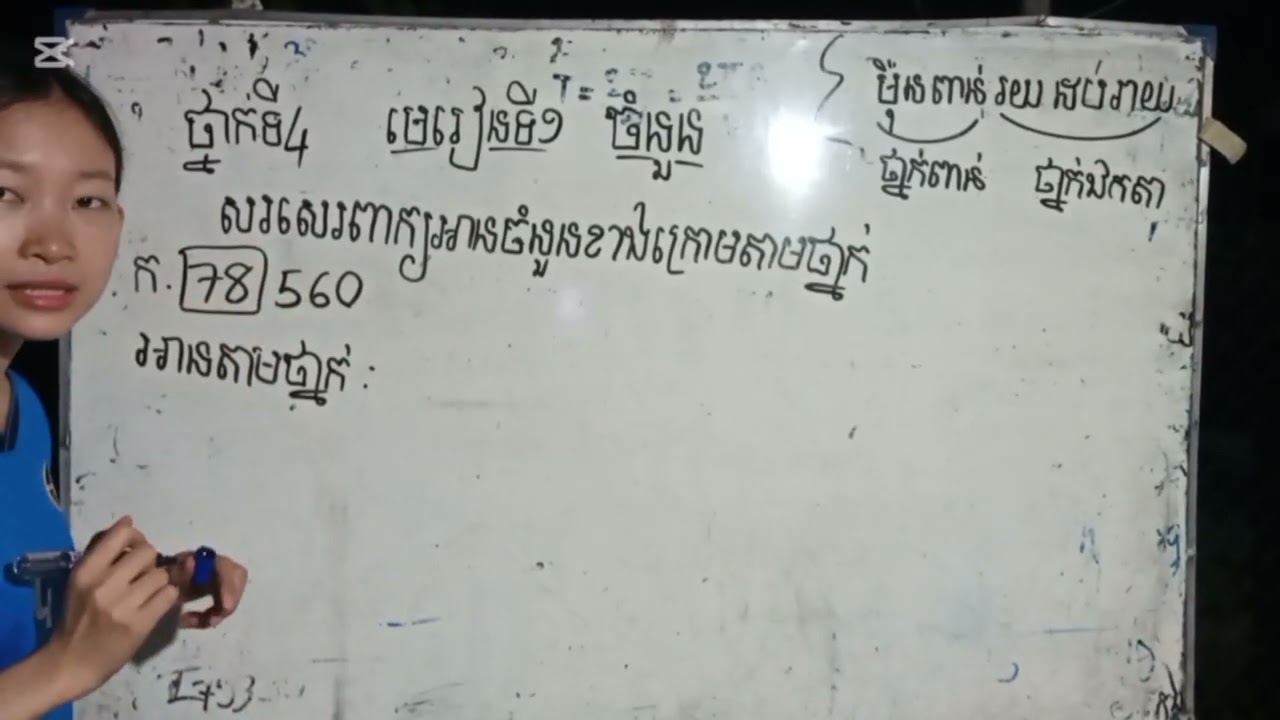 ថ្នាក់ទី4 មេរៀនទី១ ចំនួន
ម៉ឺនពាន់ រយ ដប់ រាយ
ថ្នាក់ពាន់ ថ្នាក់ឯកតា
សរសេរពាក្យអានចំនួនខាងក្រោមតាមថ្នាក់
ក. 78 560
អានតាមថ្នាក់ :